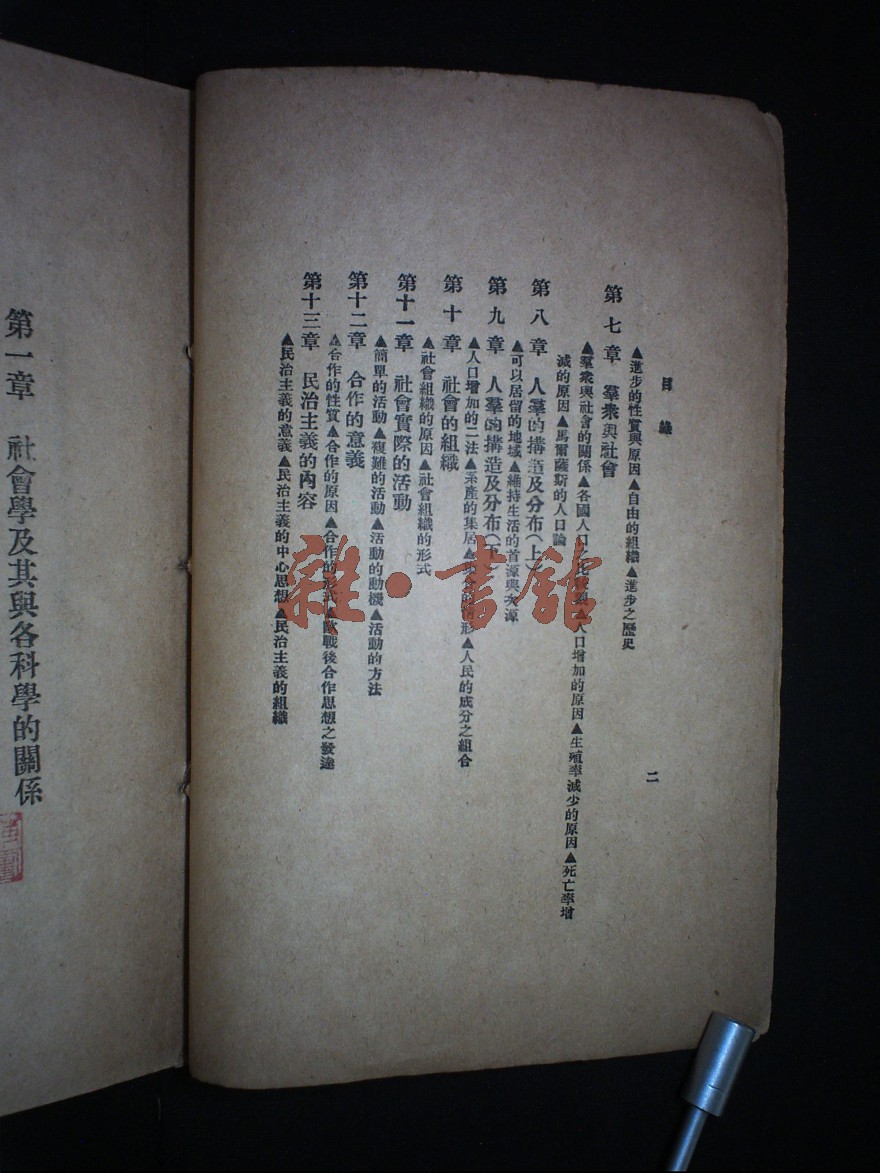 目錄
二
▲進步的性質與原因▲自由的組織▲進步之歷史
第七章 羣衆與社會
▲羣衆與社會的關係▲各國人口之▲人口增加的原因▲生殖率減少的原因▲死亡率增
減的原因▲馬爾薩斯的人口論
第八章 人羣的搆造及分布(上)
▲可以居留的地域▲維持生活的首源與次源
第九章 人羣的搆造及分布(下)
▲人口增加的二法▲系產的集居▲形▲人民的成分之組合
第十章 社會的組織
▲社會組織的原因▲社會組織的形式
第十一章 社會實際的活動
▲簡單的活動▲複雜的活動▲活動的動機▲活動的方法
第十二章 合作的意義
▲合作的性質▲合作的原因▲合作的形式▲歐戰後合作思想之發達
第十三章 民治主義的內容
▲民治主義的意義▲民治主義的中心思想▲民治主義的組織
第一章 社會學及其與各科學的關係
雜·書館